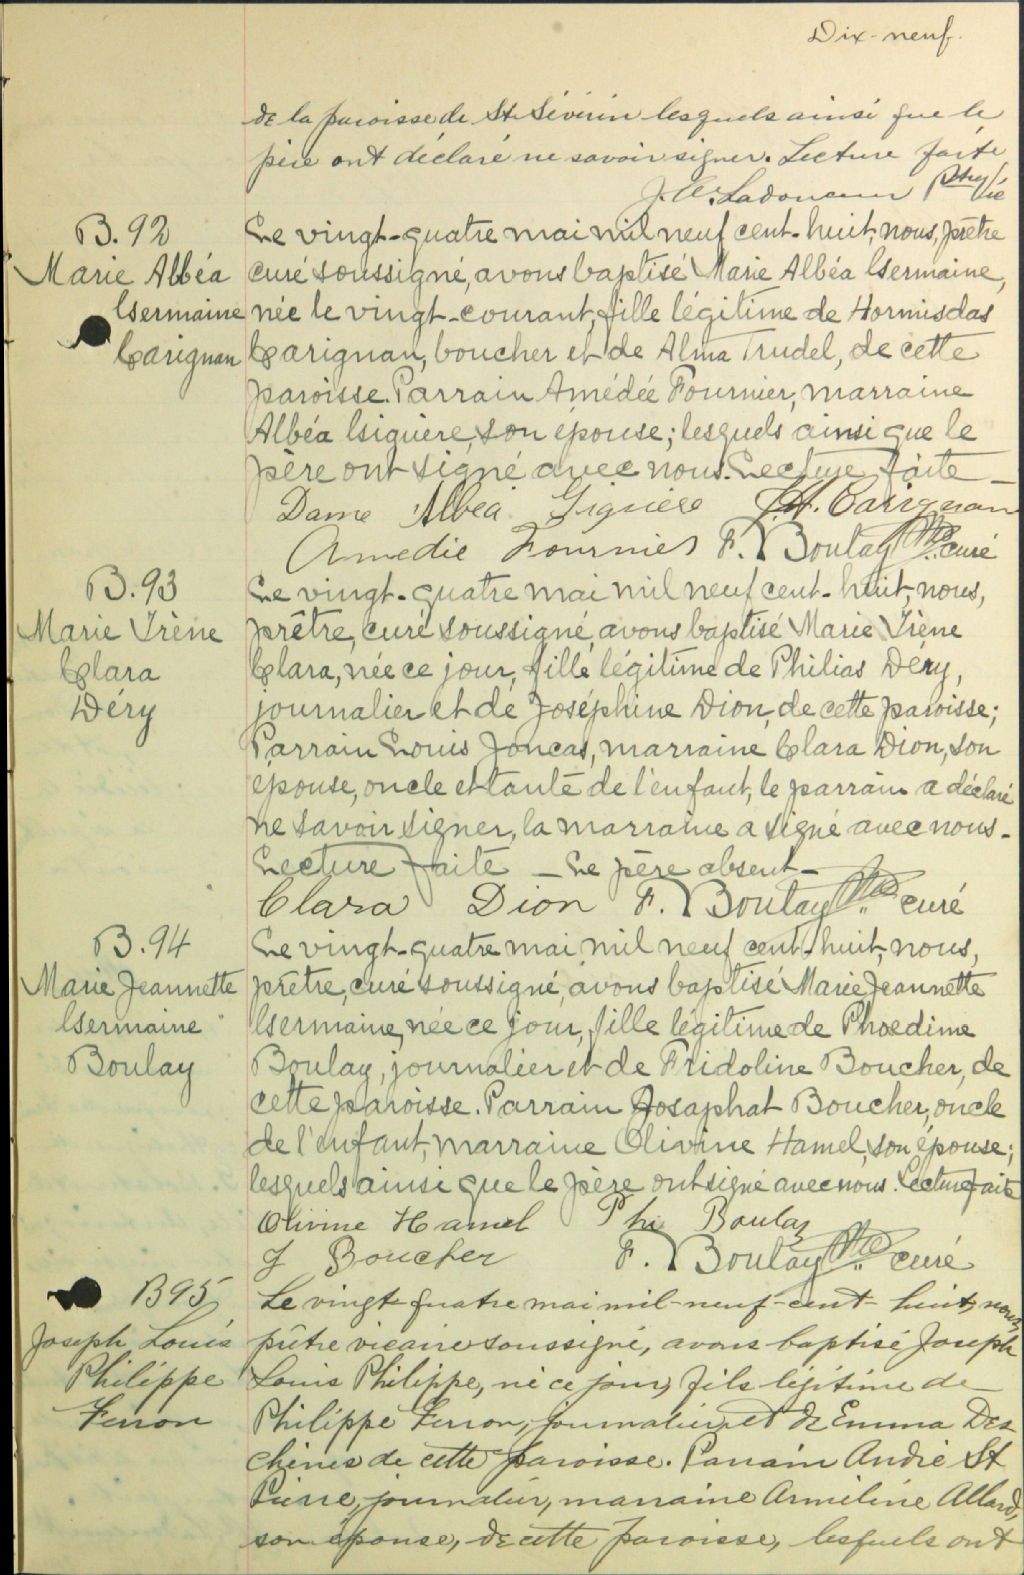 Dix-neuf.
de la paroisse de St Sévérin lesquels ainsi que le
père ont déclaré ne savoir signer. Lecture faite
J. A. Ladouceur Ptre
B. 92
Marie Albéa
Germaine
Carignan
Le vingt-quatre mai mil neuf cent-huit, nous, prêtre
curé soussigné, avons baptisé Marie Albéa Germaine,
née le vingt-courant, fille légitime de Hormisdas
Carignan, boucher et de Alma Trudel, de cette
paroisse. Parrain Amédée Fournier, marraine
Albéa Giguère, son épouse; lesquels ainsi que le
père ont signé avec nous. Lecture faite _
Dame Albea Giguère J.H. Carignan
Amedie Fournier F. Boulay Ptre curé
B. 93
Marie Irène
Clara
Déry
Le vingt-quatre mai mil neuf cent-huit, nous,
prêtre, curé soussigné, avons baptisé Marie Irène
Clara, née ce jour, fille légitime de Philias Déry,
journalier et de Joséphine Dion, de cette paroisse;
Parrain Louis Joncas, marraine Clara Dion, son
épouse, oncle et tante de l'enfant, le parrain a déclaré
ne savoir signer, la marraine a signé avec nous -
Lecture faite _ Le père absent -
Clara Dion F. Boulay Ptre curé
B. 94
Marie Jeannette
Germaine
Boulay
Le vingt-quatre mai mil neuf cent-huit, nous,
prêtre, curé soussigné, avons baptisé Marie Jeannette
Germaine, née ce jour, fille légitime de Phoedime
Boulay, journalier et de Fridoline Boucher, de
cette paroisse. Parrain Josaphat Boucher, oncle
de l'enfant, marraine Olivine Hamel, son épouse;
lesquels ainsi que le père ont signé avec nous. Lecture faite
Olivine Hamel Phi Boulay
J Boucher F. Boulay Ptre curé
B 95
Joseph Louis
Philippe
Ferron
Le vingt-quatre mai mil-neuf-cent-huit, nous,
prêtre vicaire soussigné, avons baptisé Joseph
Louis Philippe, né ce jour, fils légitime de
Philippe Ferron, journalier et de Emma Des-
chênes de cette paroisse. Parrain André St
Pierre, journalier, marraine Arméline Allard,
son épouse, de cette paroisse, lesquels ont